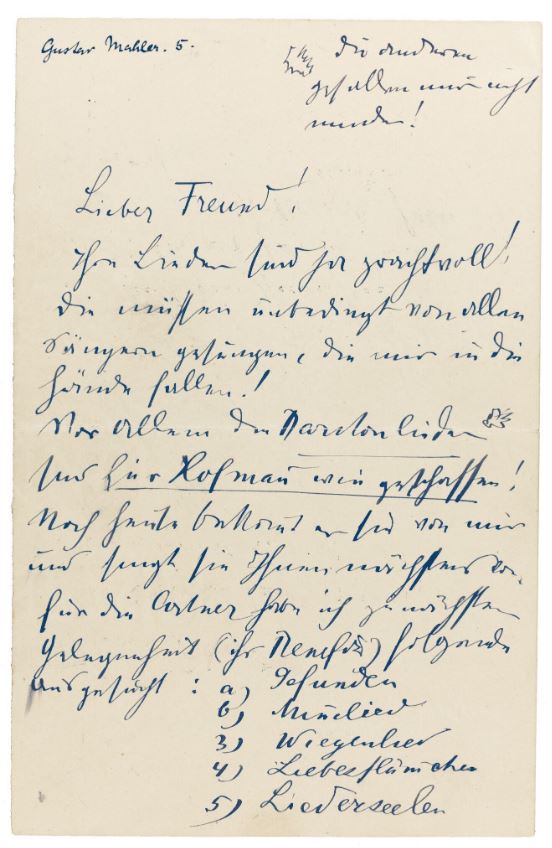 Gustav Mahler. 5.
die anderen
gefallen mir nicht
minder!
Lieber Freund!
Ihre Lieder sind ja prachtvoll!
Die müssen unbedingt von allen
Sängern gesungen, die mir in die
Hände fallen!
Vor allem die Baritonlieder
sind für Hofmañ wie geschaffen!
Noch heute bekom̄t er sie von mir
und singt sie Ihnen nächstens vor.
Für die Artner habe ich zu nächsten
Gelegenheit (ihr Benefiz) folgende
ausgesucht : a) Gefunden
b) Miñelied
3) Wiegenlied
4) Liebesflämchen
5) Liederseelen